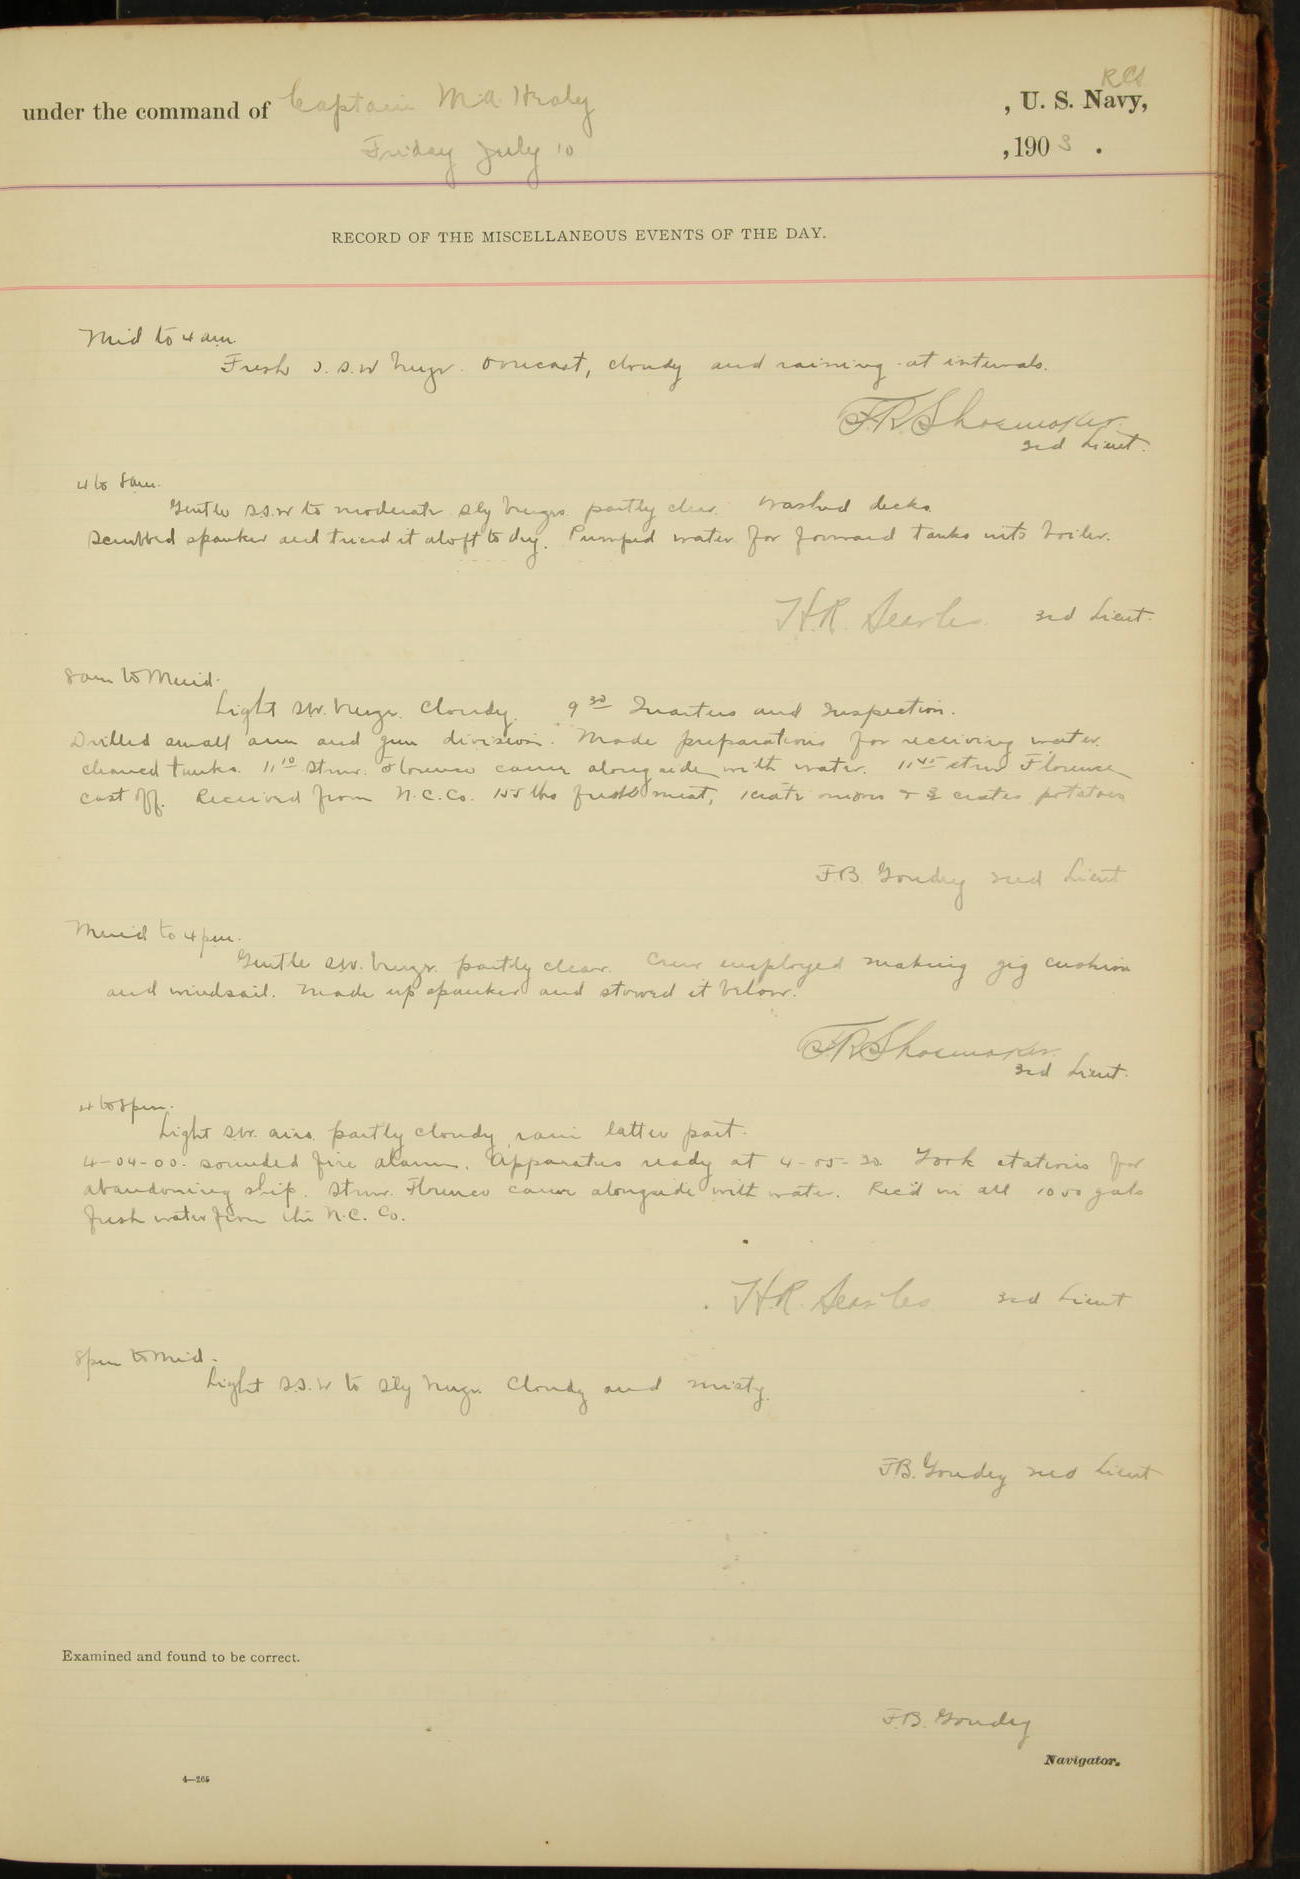 RCS
under the command of Captain M.A. Healy , U. S. Navy,
Friday July 10 , 1903 .
RECORD OF THE MISCELLANEOUS EVENTS OF THE DAY.
Mid to 4 am.
Fresh S.S.W breeze. Overcast, cloudy and raining at intervals.
F.R. Shoemaker.
3rd Lieut.
4 to 8am.
Gentle S.S.W to moderate Sly breezes partly clear. Washed decks.
Scrubbed spanker and triced it aloft to dry. Pumped water for forward tanks into boiler.
H.R. Searles 3rd Lieut.
8am to Merid.
Light SW. breeze. Cloudy. 9 30 Quarters and Inspection.
Drilled small arm and gun division. Made preparations for receiving water.
cleaned tanks. 11 10 Stmr. Florence came alongside with water. 11 45 stmr Florence
cast off. Received from N.C.Co. 155 lbs fresh meat, 1 crate onions & 2 crates potatoes
F.B. Goudey 2nd Lieut
Merid to 4 pm.
Gentle SW. breeze. partly clear. Crew employed making gig cushion
and windsail. Made up spanker and stowed it below.
F.R. Shoemaker.
3rd Lieut.
4 to 8pm.
Light SW. airs. partly cloudy, rain latter part.
4-04-00. sounded fire alarm. Apparatus ready at 4-05-30 Took stations for
abandoning ship. Stmr. Florence came alongside with water. Rec'd in all 1050 gals
fresh water from the N.C. Co.
H.R. Searles 3rd Lieut
8pm to Mid.
Light S.S.W to Sly breeze Cloudy and misty.
F.B. Goudey 2nd Lieut
Examined and found to be correct.
F.B. Goudey
Navigator.
4—265